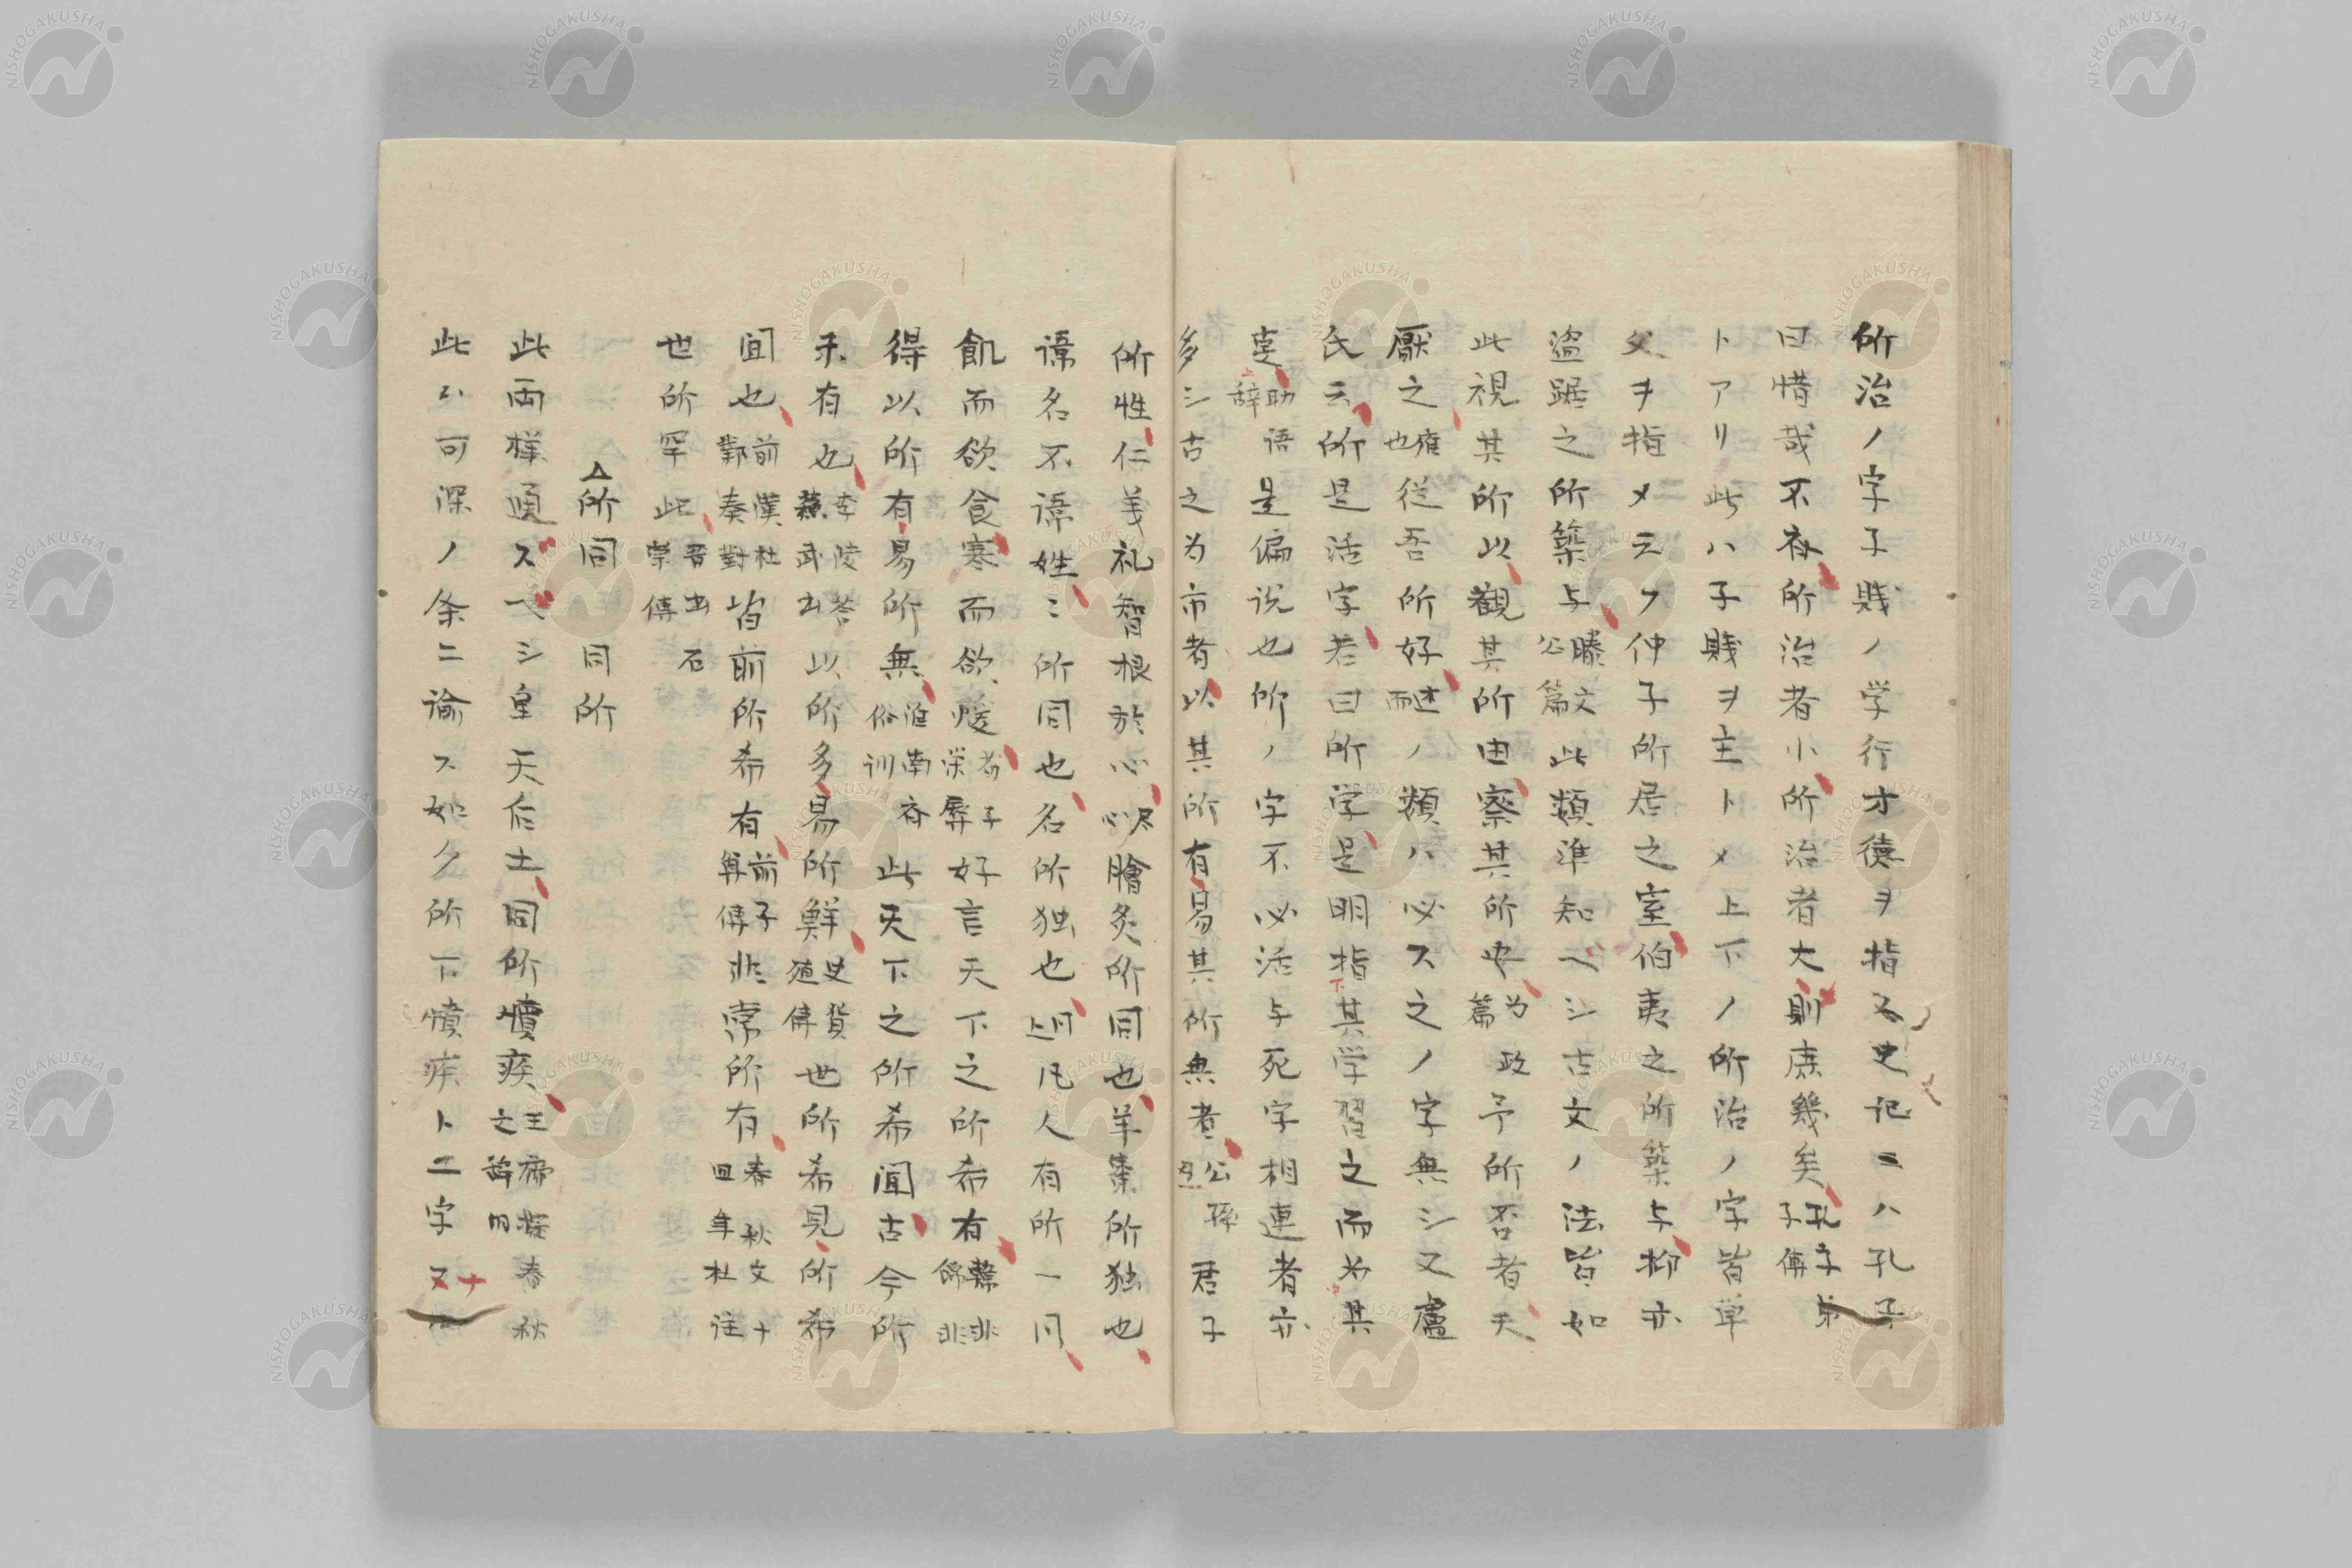 所治ノ字子賎ノ学行才徳ヲ指又史記ニハ孔子
曰惜哉不斉所治者小所治者大則庶幾矣孔子弟子傳
トアリ此ハ子賎ヲ主トメ上下ノ所治ノ字皆単
父ヲ指メ云フ仲子所居之室伯夷之所築与抑亦
盗跖之所築与滕文公篇此類準知ベシ古文ノ法皆如
此視其所以觀其所由察其所安為政篇予所否者天
厭之雍也従吾所好述而ノ類ハ必ス之ノ字無シ又盧
氏云所是活字若曰所学是明指其学習之而為其
事助語辞是偏説也所ノ字不必活与死字相連者亦
多シ古之为市者以其所有易其所無者公孫丑君子
所性仁義礼智根於心尽心膾炙所同也羊棗所独也
諱名不諱姓〻所同也名所独也同上凡人有所一同
飢而欲食寒而欲煖荀子栄辱好言天下之所希有韓非飾非
得以所有易所無淮南斉俗訓此天下之所希聞古今所
未有也李陵荅蘇武書以所多易所鮮史貨殖傳世所希見所希
聞也前漢杜鄴奏對皆前所希有前子傳非常所有春秋文十四年杜注
世所罕此晋書石崇傳
△所同 同所
此両様通スベシ皇天后土同所憤疾王
此ハ可深ノ条ニ諭ス如ク所下憤疾ト二字又ナ